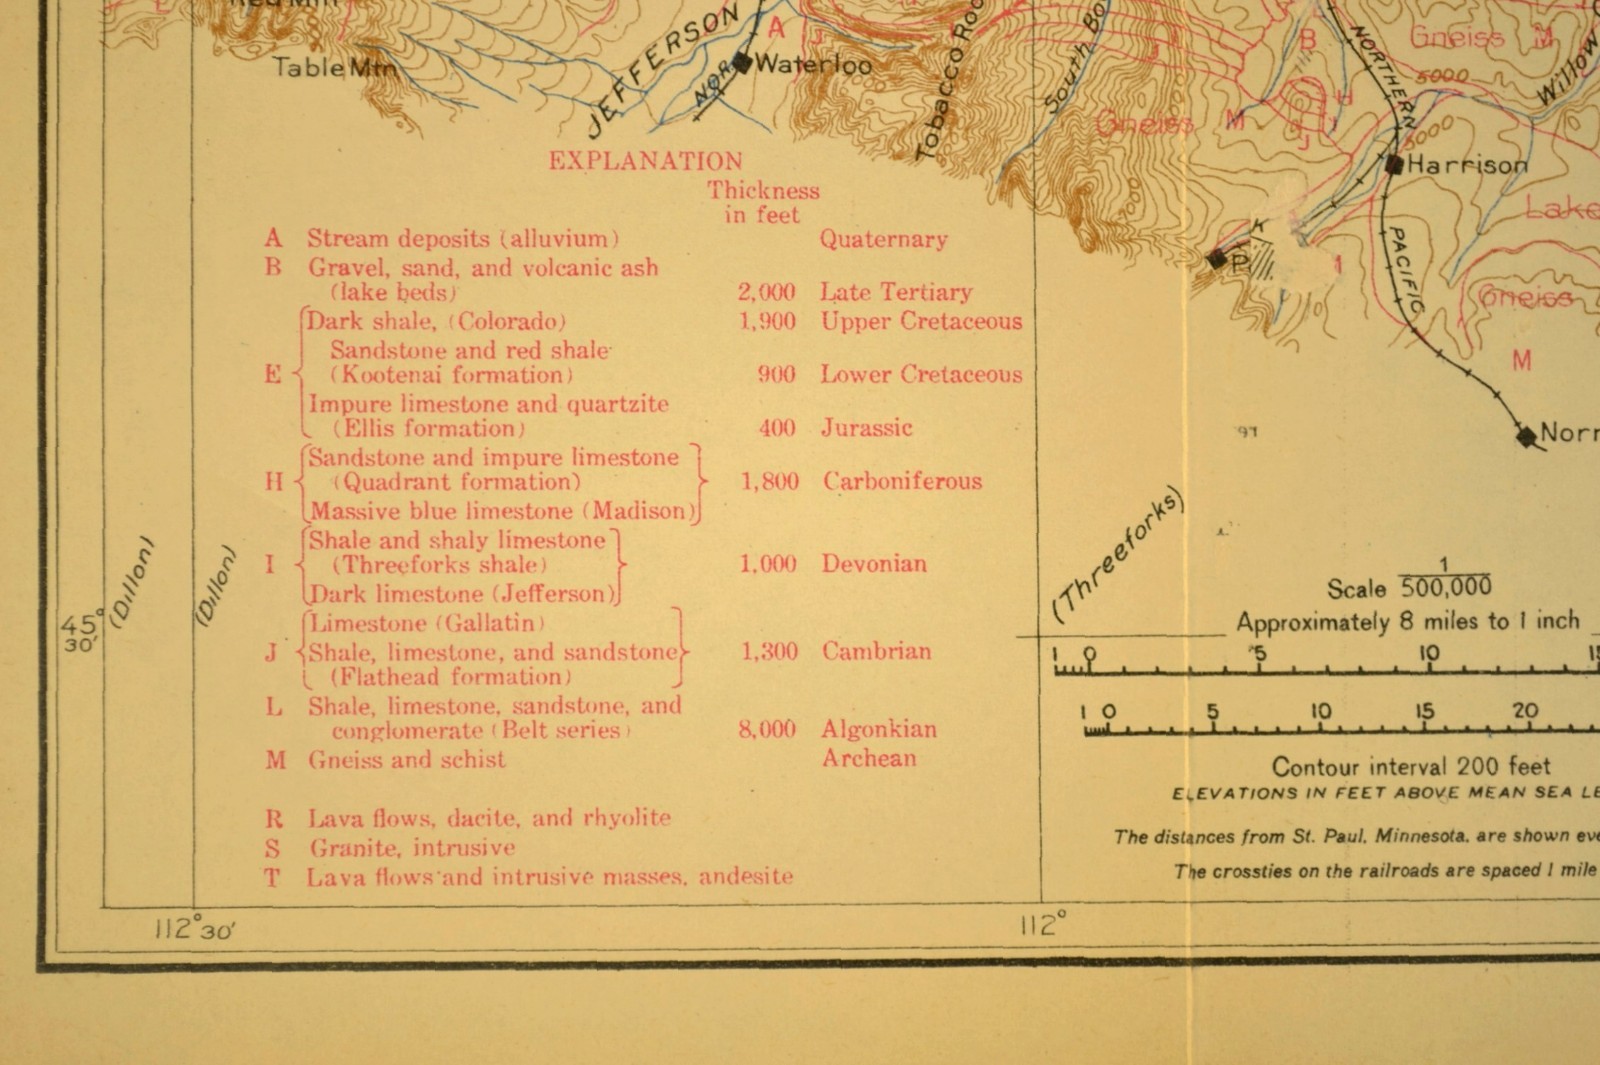 Table Mtn
JEFFERSON
NOR
A
J
Waterloo
Tobacco
South
B
Gneiss M
5000
Willow
NORTHERN
H
Gneiss M
J
5000
Harrison
7000
Lake
P
I
PACIFIC
Gneiss
M
Norr
EXPLANATION
Thickness
in feet
A Stream deposits (alluvium) Quaternary
B Gravel, sand, and volcanic ash
(lake beds) 2,000 Late Tertiary
Dark shale, (Colorado) 1,900 Upper Cretaceous
Sandstone and red shale
E (Kootenai formation) 900 Lower Cretaceous
Impure limestone and quartzite
(Ellis formation) 400 Jurassic
Sandstone and impure limestone
H (Quadrant formation) 1,800 Carboniferous
Massive blue limestone (Madison)
Shale and shaly limestone
I (Threeforks shale) 1,000 Devonian
Dark limestone (Jefferson)
Limestone (Gallatin)
J Shale, limestone, and sandstone 1,300 Cambrian
(Flathead formation)
L Shale, limestone, sandstone, and
conglomerate (Belt series) 8,000 Algonkian
M Gneiss and schist Archean
R Lava flows, dacite, and rhyolite
S Granite, intrusive
T Lava flows and intrusive masses, andesite
(Dillon)
(Dillon)
45°
30'
(Threeforks)
Scale 1/500,000
Approximately 8 miles to 1 inch
1 0 5 10
1 0 5 10 15 20
Contour interval 200 feet
ELEVATIONS IN FEET ABOVE MEAN SEA LE
The distances from St. Paul, Minnesota, are shown eve
The crossties on the railroads are spaced 1 mile
112° 30'
112°